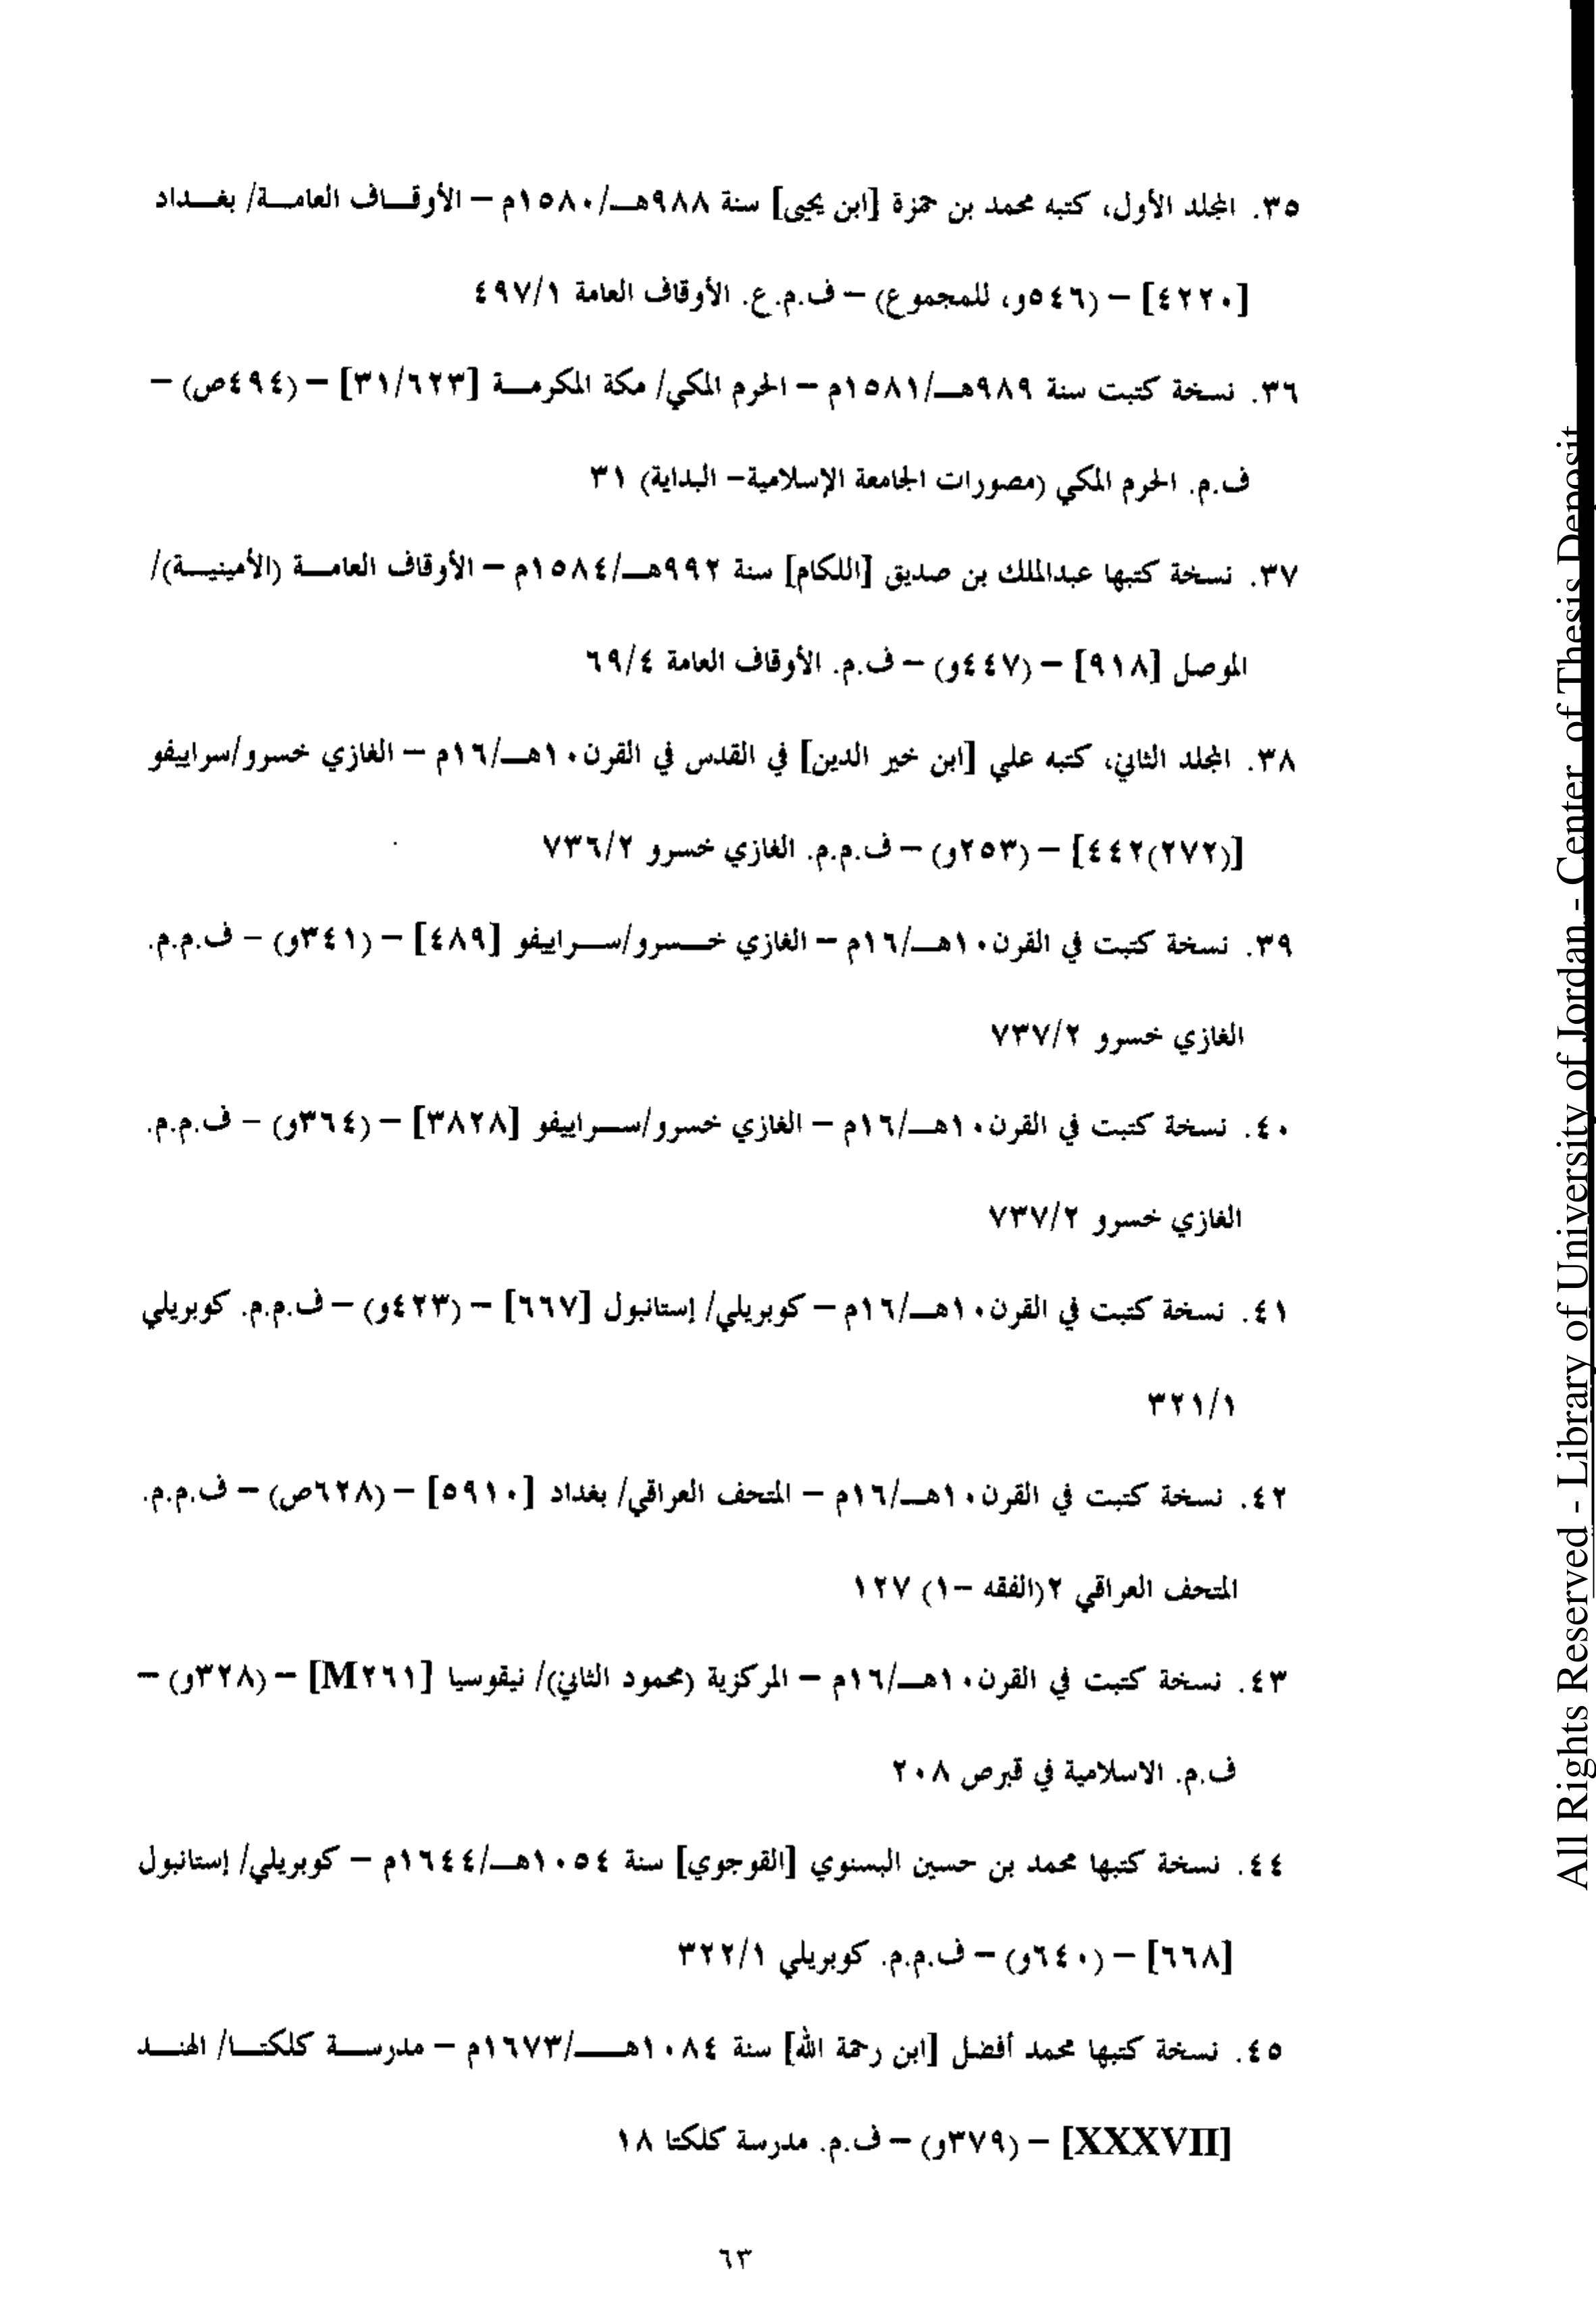 ٣٥. المجلد الأول، كتبه محمد بن حمزة [ابن يحيى] سنة ٩٨٨هـ/١٥٨٠م – الأوقاف العامة/ بغداد
[٤٢٢٠] – (٥٤٦و، للمجموع) – ف.م.ع. الأوقاف العامة ٤٩٧/١
٣٦. نسخة كتبت سنة ٩٨٩هـ/١٥٨١م – الحرم المكي/ مكة المكرمة [٣١/٦٢٣] – (٤٩٤ص) –
ف.م. الحرم المكي (مصورات الجامعة الإسلامية– البداية) ٣١
٣٧. نسخة كتبها عبدالملك بن صديق [اللكام] سنة ٩٩٢هـ/١٥٨٤م – الأوقاف العامة (الأمينية)/
الموصل [٩١٨] – (٤٤٧و) – ف.م. الأوقاف العامة ٦٩/٤
٣٨. المجلد الثاني، كتبه علي [ابن خير الدين] في القدس في القرن١٠هـ/١٦م – الغازي خسرو/سراييفو
[(٢٧٢)٤٤٢] – (٢٥٣و) – ف.م.م. الغازي خسرو ٧٣٦/٢
٣٩. نسخة كتبت في القرن١٠هـ/١٦م – الغازي خسرو/سراييفو [٤٨٩] – (٣٤١و) – ف.م.م.
الغازي خسرو ٧٣٧/٢
٤٠. نسخة كتبت في القرن١٠هـ/١٦م – الغازي خسرو/سراييفو [٣٨٢٨] – (٣٦٤و) – ف.م.م.
الغازي خسرو ٧٣٧/٢
٤١. نسخة كتبت في القرن١٠هـ/١٦م – كوبريلي/ إستانبول [٦٦٧] – (٤٢٣و) – ف.م.م. كوبريلي
٣٢١/١
٤٢. نسخة كتبت في القرن١٠هـ/١٦م – المتحف العراقي/ بغداد [٥٩١٠] – (٦٢٨ص) – ف.م.م.
المتحف العراقي ٢(الفقه –١) ١٢٧
٤٣. نسخة كتبت في القرن١٠هـ/١٦م – المركزية (محمود الثاني)/ نيقوسيا [M٢٦١] – (٣٢٨و) –
ف.م. الاسلامية في قبرص ٢٠٨
٤٤. نسخة كتبها محمد بن حسين البسنوي [القوجوي] سنة ١٠٥٤هـ/١٦٤٤م – كوبريلي/ إستانبول
[٦٦٨] – (٦٤٠و) – ف.م.م. كوبريلي ٣٢٢/١
٤٥. نسخة كتبها محمد أفضل [ابن رحمة الله] سنة ١٠٨٤هـ/١٦٧٣م – مدرسة كلكتا/ الهند
[XXXVII] – (٣٧٩و) – ف.م. مدرسة كلكتا ١٨
٦٣
All Rights Reserved - Library of University of Jordan - Center of Thesis Deposit